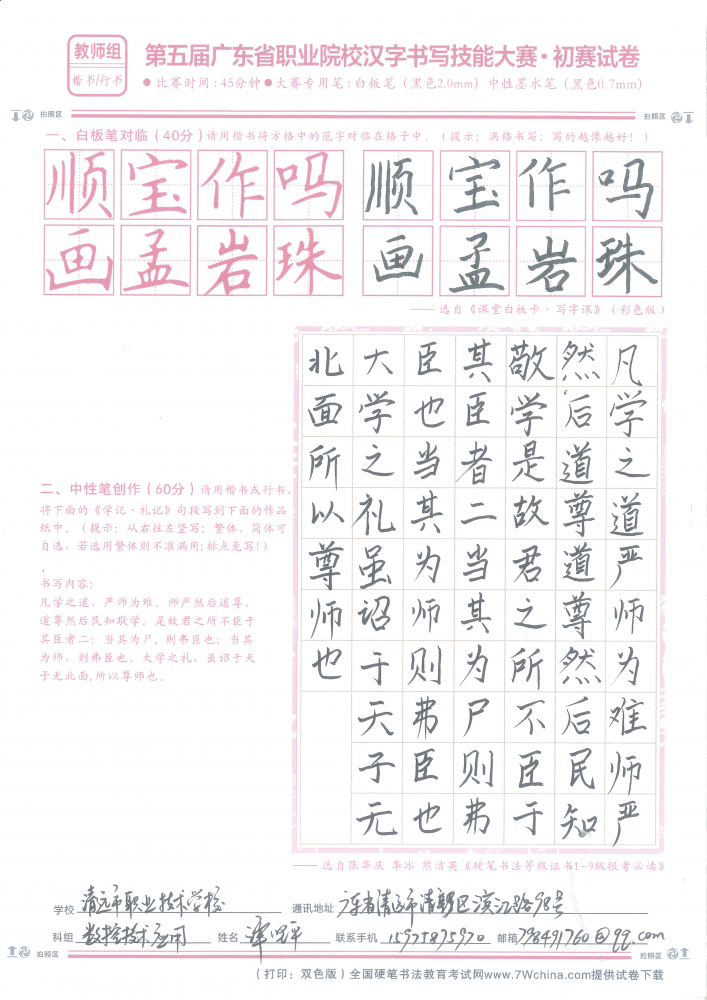 教师组
楷书/行书
第五届广东省职业院校汉字书写技能大赛·初赛试卷
●比赛时间:45分钟●大赛专用笔:白板笔(黑色2.0mm) 中性墨水笔(黑色0.7mm)
拍照区
拍照区
一、白板笔对临(40分)请用楷书将方格中的范字对临在格子中。(提示:满格书写;写的越像越好!)
顺宝作吗 顺宝作吗
画孟岩珠 画孟岩珠
——选自《课堂白板卡·写字课》(彩色版)
二、中性笔创作(60分)请用楷书或行书,
将下面的《学记·礼记》句段写到下面的作品
纸中。(提示:从右往左竖写;繁体、简体可
自选,若选用繁体则不准漏用;标点免写!)
书写内容:
凡学之道,严师为难。师严然后道尊,
道尊然后民知敬学。是故君之所不臣于
其臣者二:当其为尸,则弗臣也;当其
为师,则弗臣也。大学之礼,虽诏于天
子无北面,所以尊师也。
凡学之道严师为难师严
然后道尊道尊然后民知
敬学是故君之所不臣于
其臣者二当其为尸则弗
臣也当其为师则弗臣也
大学之礼虽诏于天子无
北面所以尊师也
——选自张华庆 李冰 熊洁英《硬笔书法等级证书1~9级报考必读》
学校 清远市职业技术学校 通讯地址 广东省清远市清新区滨江路98号
科组 数控技术应用 姓名 联系手机 15975875970 邮箱 798491760@qq.com
拍照区
拍照区
(打印:双色版)全国硬笔书法教育考试网www.7Wchina.com提供试卷下载